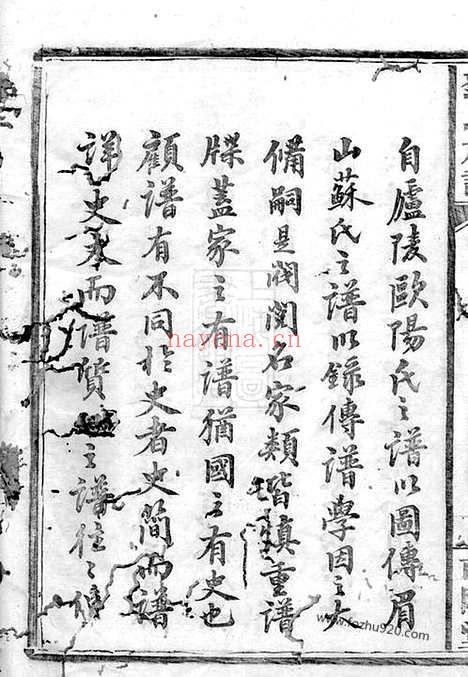 自廬陵歐陽氏之譜以圖傳眉
山蘇氏之譜以錄傳譜學因之大
備嗣是閥閱名家類皆慎重譜
牒蓋家之有譜猶國之有史也
顧譜有不同於史者史簡而譜
詳史文而譜質 之譜往之
nayana.cn
www.fozhu920.com